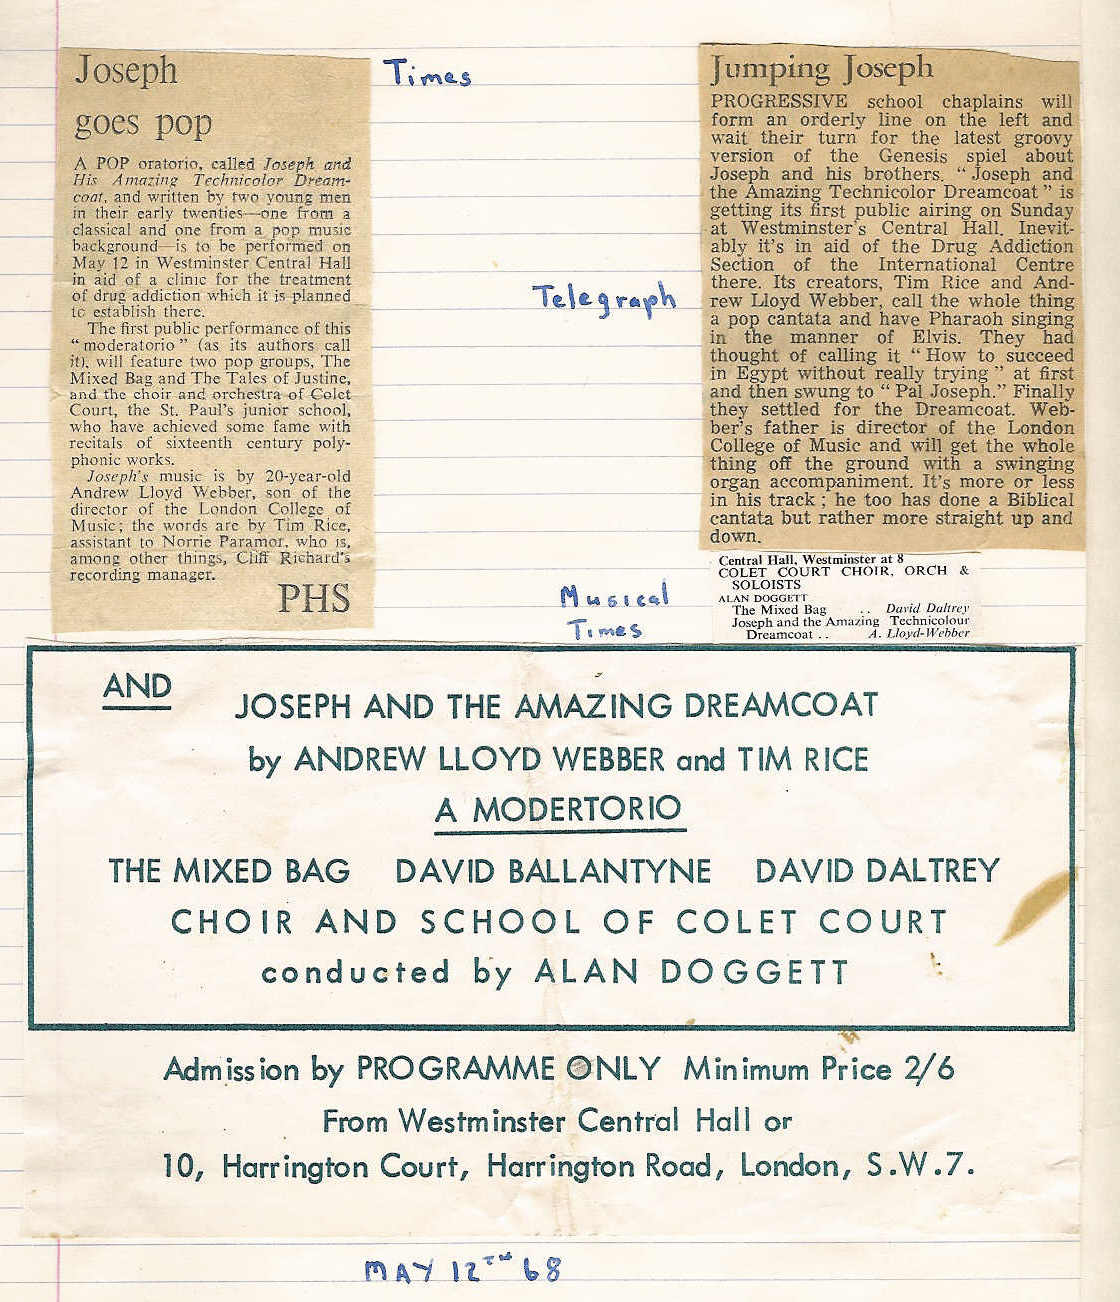 Joseph
goes pop
A POP oratorio, called Joseph and
His Amazing Technicolor Dream-
coat, and written by two young men
in their early twenties—one from a
classical and one from a pop music
background—is to be performed on
May 12 in Westminster Central Hall
in aid of a clinic for the treatment
of drug addiction which it is planned
to establish there.
The first public performance of this
“moderatorio” (as its authors call
it), will feature two pop groups, The
Mixed Bag and The Tales of Justine,
and the choir and orchestra of Colet
Court, the St. Paul's junior school,
who have achieved some fame with
recitals of sixteenth century poly-
phonic works.
Joseph's music is by 20-year-old
Andrew Lloyd Webber, son of the
director of the London College of
Music; the words are by Tim Rice,
assistant to Norrie Paramor, who is,
among other things, Cliff Richard's
recording manager.
PHS
Times
Telegraph
Jumping Joseph
PROGRESSIVE school chaplains will
form an orderly line on the left and
wait their turn for the latest groovy
version of the Genesis spiel about
Joseph and his brothers. “Joseph and
the Amazing Technicolor Dreamcoat” is
getting its first public airing on Sunday
at Westminster's Central Hall. Inevit-
ably it's in aid of the Drug Addiction
Section of the International Centre
there. Its creators, Tim Rice and And-
rew Lloyd Webber, call the whole thing
a pop cantata and have Pharaoh singing
in the manner of Elvis. They had
thought of calling it “How to succeed
in Egypt without really trying” at first
and then swung to “Pal Joseph.” Finally
they settled for the Dreamcoat. Web-
ber's father is director of the London
College of Music and will get the whole
thing off the ground with a swinging
organ accompaniment. It's more or less
in his track; he too has done a Biblical
cantata but rather more straight up and
down.
Musical
Times
Central Hall, Westminster at 8
COLET COURT CHOIR, ORCH &
SOLOISTS
ALAN DOGGETT
The Mixed Bag .. David Daltrey
Joseph and the Amazing Technicolour
Dreamcoat .. A. Lloyd-Webber
AND
JOSEPH AND THE AMAZING DREAMCOAT
by ANDREW LLOYD WEBBER and TIM RICE
A MODERTORIO
THE MIXED BAG DAVID BALLANTYNE DAVID DALTREY
CHOIR AND SCHOOL OF COLET COURT
conducted by ALAN DOGGETT
Admission by PROGRAMME ONLY Minimum Price 2/6
From Westminster Central Hall or
10, Harrington Court, Harrington Road, London, S.W.7.
MAY 12TH 68